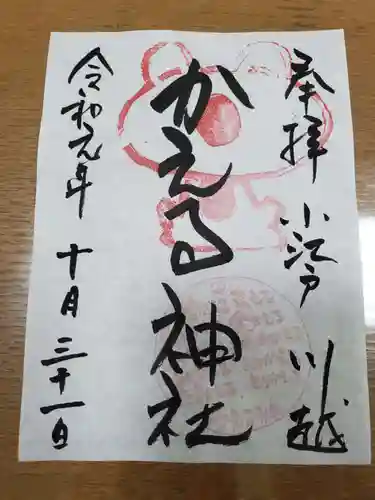 奉拝 小江戸 川越
かえる神社
令和元年 十月 三十一日